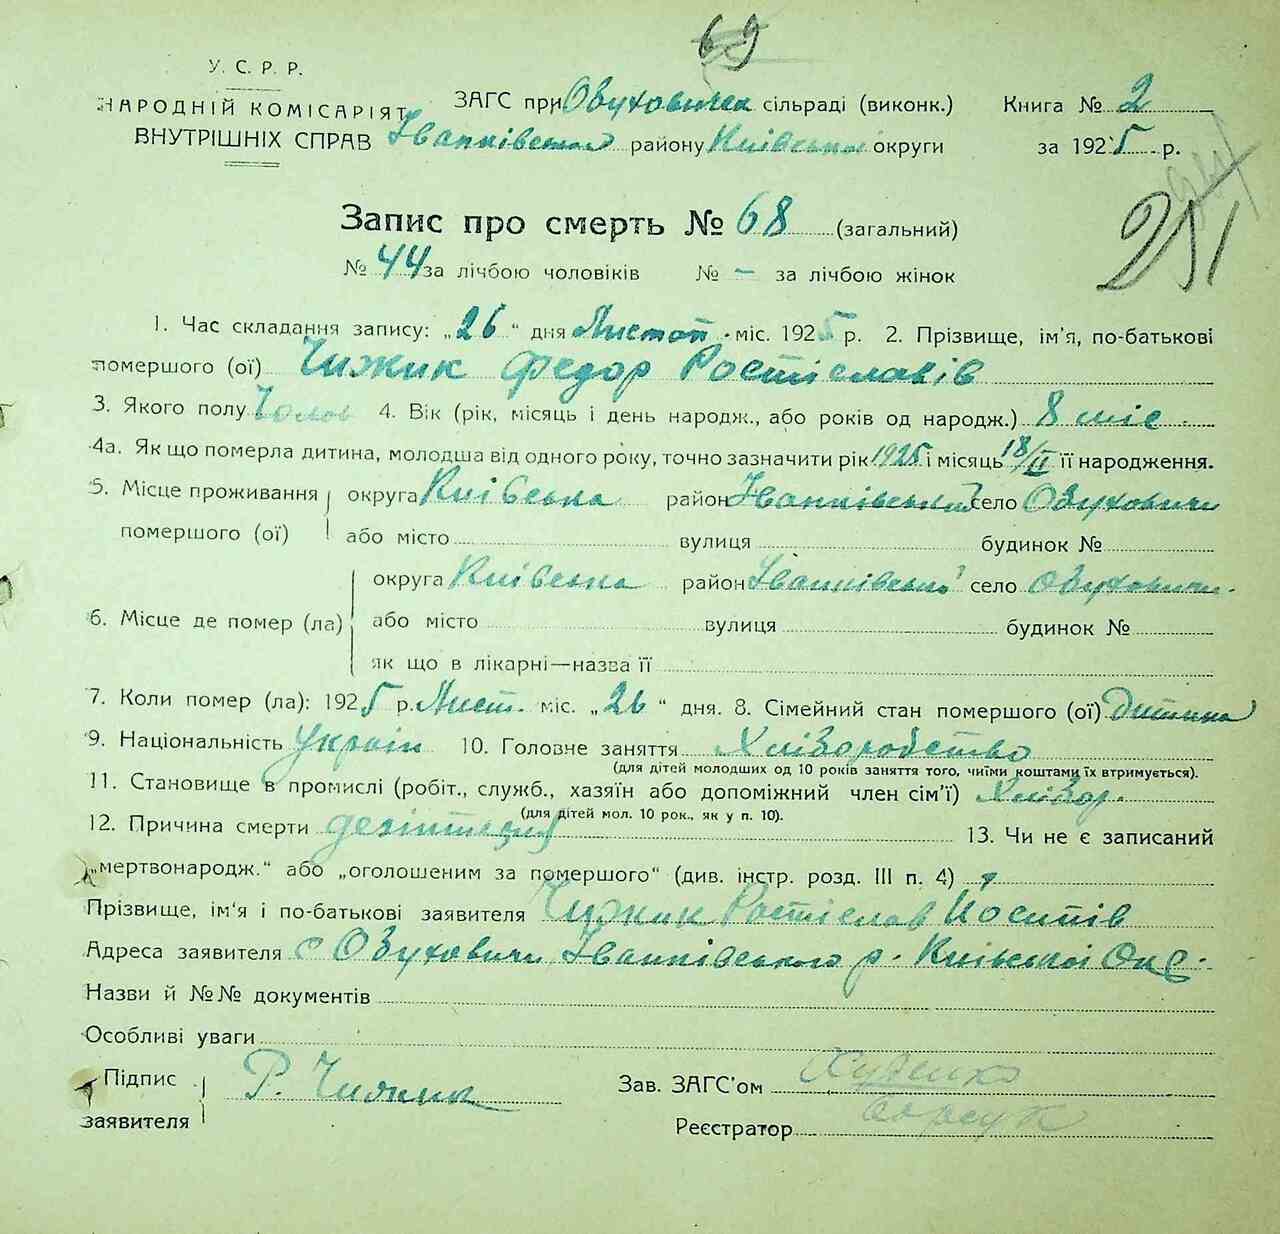 69
У. С. Р. Р.
НАРОДНІЙ КОМІСАРІЯТ
ВНУТРІШНІХ СПРАВ
ЗАГС при Обуховицка сільраді (виконк.)
Іванківском району Київської округи
Книга № 2
за 1925 р.
251
Запис про смерть № 68 (загальний)
№ 44 за лічбою чоловіків № – за лічбою жінок
1. Час складання запису: „26“ дня Листоп. міс. 1925 р. 2. Прізвище, ім'я, по-батькові
помершого (ої) Чижик Федор Ростіславів
3. Якого полу Чолов 4. Вік (рік, місяць і день народж., або років од народж.) 8 міс
4а. Як що померла дитина, молодша від одного року, точно зазначити рік 1925 і місяць 18/II її народження.
5. Місце проживання помершого (ої) округа Київська район Іванківський село Обуховичи
або місто вулиця будинок №
6. Місце де помер (ла) округа Київська район Іванківський село Обуховичи
або місто вулиця будинок №
як що в лікарні—назва її
7. Коли помер (ла): 1925 р. Лист. міс. „26“ дня. 8. Сімейний стан помершого (ої) Дитина
9. Національність Україн 10. Головне заняття Хліборобство
(для дітей молодших од 10 років заняття того, чиїми коштами їх втримується).
11. Становище в промислі (робіт., служб., хазяїн або допоміжний член сім'ї) Хлібор.
(для дітей мол. 10 рок., як у п. 10).
12. Причина смерти 13. Чи не є записаний
„мертвонародж.“ або „оголошеним за помершого“ (див. інстр. розд. III п. 4)
Прізвище, ім'я і по-батькові заявителя Чижик Ростіслав Йосипів
Адреса заявителя с Обуховичи Іванківського р. Київської Окр.
Назви й №№ документів
Особливі уваги
Підпис заявителя Р. Чижик
Зав. ЗАГС'ом
Реєстратор Борсук